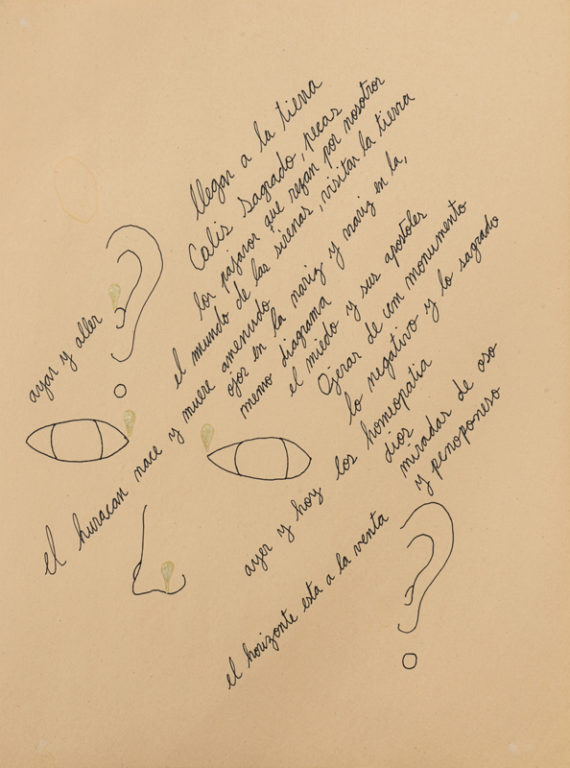 llegar a la tierra
Calis sagrado, pecas
los pajaros que rezan por nosotros
el mundo de las sirenas, visitar la tierra
ayar y aller
el huracan nace y muere amenudo
ojos en la nariz y nariz en la,
memo diagrama
el miedo y sus apostoles
de um monumento
lo negativo y lo sagrado
ayer y hoy los homeopatia
dios
miradas de oso
y penoponeso
el horizonte esta a la venta